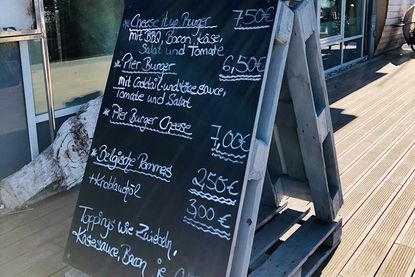 * Cheese it up Burger 7,50€
mit BBQ, Bacon, Käse,
Salat und Tomate
* Pier Burger 6,50€
mit Cocktail und Käsesauce,
Tomate und Salat
* Pier Burger Cheese 7,00€
* Belgische Pommes 2,50€
+ Knoblauch 3,00€
Toppings wie Zwiebeln,
Käsesauce, Bacon je